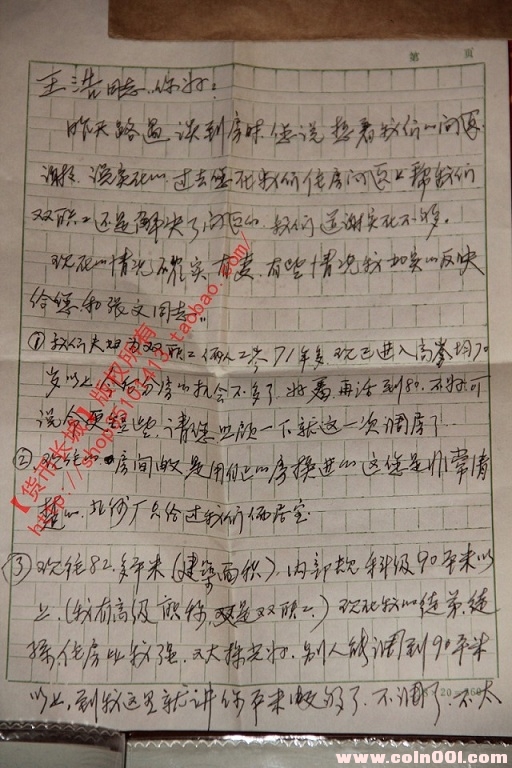 第 页
王浩同志:你好:
昨天路过谈到房时您说想着我们的问题
谢谢。说实在的,过去您在我们住房问题上帮我们
双职工还是解决了问题的,我们道谢实在不够。
现在的情况确实有变,有些情况我如实的反映
给您和张文同志。
①我们夫妇为双职工俩人工龄71年多现已进入高峯均70
岁以上,今后分房的机会不多了,好著再活到80,不好可
说会更短些,请您照顾一下就这一次调房了
②现住的房间都是用自己的房换进的这您是非常清
楚的,北 厂只给过我们俩居室
③现住82.多平米(建筑面积),内部规科级90平米以
上,(我有高级职称,又是双职工)现在我的徒弟,徒
孙住房比我强,又大 ,别人能调到90平米
以上,到我这里就讲你平米够了,不调了,不太
20
【货币长城】版权所有
http://shop35102413.taobao.com/
www.coin001.com